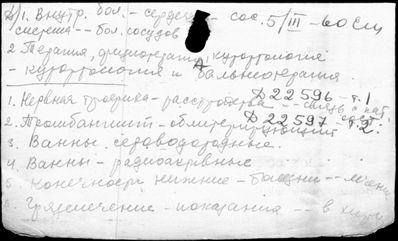 1. Внутр. бол. - сердечн - сос. 5/III-60 Ем
система -- бол. сосудов
2. Терапия, физиотерапия, курортология
- курортология и бальнеотерапия.
Д 22596 - т.1
1. Нервная трофика - расстройства -- связь с
Д 22597 - т.2
2. Тромбангиит - облитерирующий
3. Ванны - сероводородные.
4. Ванны - радиоактивные
5 Конечности нижние - -- лечение
6. Грязелечение - показания -- в